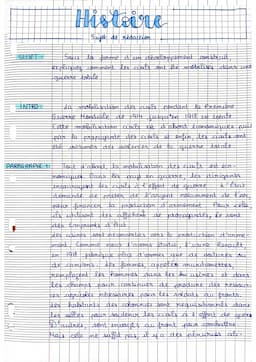 Histoire
Sujet de rédaction
SUJET : Sous la forme d'un développement construit,
expliquez comment les civils ont été mobilisés dans une
guerre totale.
INTRO : La mobilisation des civils pendant la Première
Guerre Mondiale de 1914 jusqu'en 1918 est totale.
Cette mobilisation civile est d'abord économique puis
par la propagande des civils et enfin, les civils ont
été victimes des violences de la guerre totale.
PARAGRAPHE 1 : Tout d'abord, la mobilisation des civils est éco-
nomique. Dans les pays en guerre, les dirigeants
l'effort de guerre. L'État
demande de prêter de l'argent notamment de l'or,
pour financer la production d'armement. Pour cela,
ils utilisent des affiches de propagande, ce sont
des emprunts d'État.
Les civils sont
ment. Comme nous l'avons étudié, l'usine Renault,
en 1917 fabrique plus d'armes que de voitures ou
de camions. Les femmes, appelées munitionnettes,
remplacent les hommes dans les usines et dans
les champs pour continuer de produire des ressour-
ces agricoles nécessaires pour les soldats au front.
Les habitants des colonies sont réquisitionnés dans
les villes pour soutenir les civils et l'effort de guerre
D'autres, sont envoyés au front pour combattre.
Mais cela ne suffit pas, il y a des pénuries